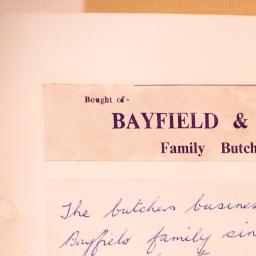 Bought of-
BAYFIELD &
Family Butch
The butchers busines
Bayfield family sin